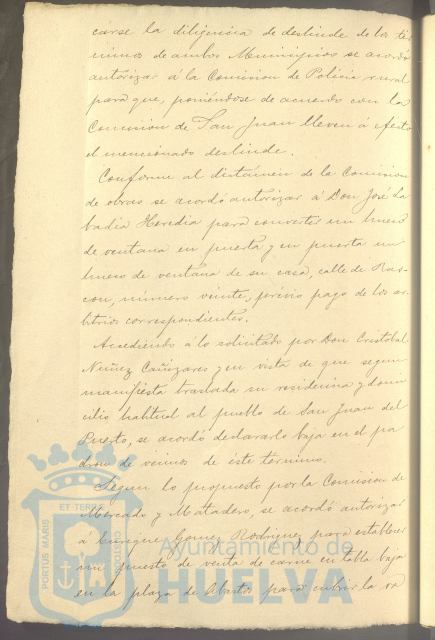 carse la diligencia de deslinde de los tér
minos de ambos Municipios se acordó
autorizar á la Comision de Policia rural
para que, poniéndose de acuerdo con la
Comision de San Juan lleven á efecto
el mencionado deslinde.
Conforme al dictámen de la Comision
de obras se acordó autorizar á Don José La
badia Heredia para convertir un hueco
de ventana en puerta y en puerta un
hueco de ventana de su casa, calle de Ras-
con, número veinte, prévio pago de los ar-
bitrios correspondientes.
Accediendo á lo solicitado por Don Cristobal
Nuñez Cañizares y en vista de que segun
manifiesta traslada su residencia y domi
cilio habitual al pueblo de San Juan del
Puerto, se acordó declararlo baja en el pa
dron de vecinos de éste término.
Segun lo propuesto por la Comision de
Mercado y Matadero, se acordó autorizar
á Enrique Gomez Rodriguez para establecer
un puesto de venta de carne en tabla baja
en la plaza de Abastos para cubrir la va
PORTUS MARIS ET TERRAE CUSTODIA
Ayuntamiento de
HUELVA